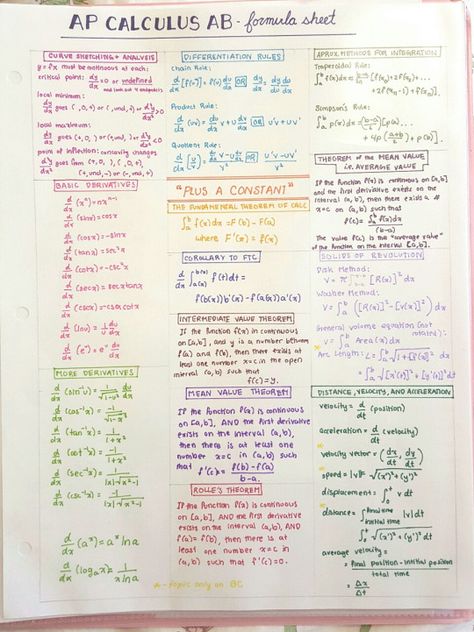 AP CALCULUS AB - formula sheet
CURVE SKETCHING + ANALYSIS
y = fx must be continuous at each:
critical point: dy/dx = 0 or undefined
and look out 4 endpoints
local minimum:
dy/dx goes (-,0,+) or (-,und,+) or d²y/dx² > 0
local maximum:
dy/dx goes (+,0,-) or (+,und,-) or d²y/dx² < 0
point of inflection: concavity changes
d²y/dx² goes from (+,0,-), (-,0,+)
(+,und,-) or (-,und,+)
BASIC DERIVATIVES
d/dx (xⁿ) = nxⁿ⁻¹
d/dx (sinx) = cosx
d/dx (cosx) = -sinx
d/dx (tanx) = sec²x
d/dx (cotx) = -csc²x
d/dx (secx) = secxtanx
d/dx (cscx) = -cscxcotx
d/dx (lnu) = 1/u du/dx
MORE DERIVATIVES
d/dx (cos⁻¹x) = -1/√1-x²
d/dx (tan⁻¹x) = 1/1+x²
d/dx (cot⁻¹x) = -1/1+x²
d/dx (sec⁻¹x) = 1/|x|√x²-1
d/dx (csc⁻¹x) = -1/|x|√x²-1
d/dx (aˣ) = aˣ lna
d/dx (logₐx) = 1/xlna
DIFFERENTIATION RULES
Chain Rule:
d/dx [f(u)] = f'(u) du/dx OR dy/dx = dy/du du/dx
Product Rule:
d/dx (uv) = du/dx v + u dv/dx OR u'v + uv'
Quotient Rule:
"PLUS A CONSTANT"
THE FUNDAMENTAL THEOREM OF CALC
∫ₐᵇ f(x)dx = F(b) - F(a)
where F'(x) = f(x)
COROLLARY TO FTC
d/dx ∫ₐ₍ₓ₎ᵇ⁽ˣ⁾ f(t)dt =
f(b(x))b'(x) - f(a(x))a'(x)
INTERMEDIATE VALUE THEOREM
If the function f(x) is continuous
on [a,b], and y is a number between
f(a) and f(b), then there exists at
least one number x=c in the open
interval (a,b) such that
f(c)=y.
MEAN VALUE THEOREM
If the function f(x) is continuous
on [a,b], AND the first derivative
exists on the interval (a,b),
then there is at least one
number x=c in (a,b) such
that f'(c) = f(b)-f(a)/b-a.
ROLLE'S THEOREM
If the function f(x) is continuous
on [a,b], AND the first derivative
exists on the interval (a,b), AND
f(a)=f(b), then there is at
least one number x=c in
(a,b) such that f'(c)=0.
* - topic only on BC
APROX. METHODS FOR INTEGRATION
Trapezoidal Rule:
Simpson's Rule:
THEOREM of the MEAN VALUE
i.e. AVERAGE VALUE
If the function f(x) is continuous on [a,b]
and the first derivative exists on the
interval (a,b), then there exists a #
x=c on (a,b) such that
f(c) = ∫ₐᵇ f(x)dx/(b-a)
The value f(c) is the "average value"
of the function on the interval [a,b].
SOLIDS OF REVOLUTION
Disk Method:
V = π∫ [R(x)]² dx
Washer Method:
V = π∫ₐᵇ ([R(x)]² - [r(x)]²) dx
General volume equation (not
rotated):
V = ∫ₐᵇ Area(x) dx
* Arc Length: L = ∫ₐᵇ √1+[f'(x)]² dx
= ∫ₐᵇ √[x'(t)]² + [y'(t)]² dt
DISTANCE, VELOCITY, AND ACCELERATION
velocity = d/dt (position)
acceleration = d/dt (velocity)
* velocity vector = (dx/dt, dy/dt)
* speed = |v| = √(x')² + (y')²
displacement = ∫ v dt
* distance = ∫ |v| dt
final time
initial time
∫ √(x')² + (y')² dt
average velocity =
= final position - initial position/total time
= Δx/Δt